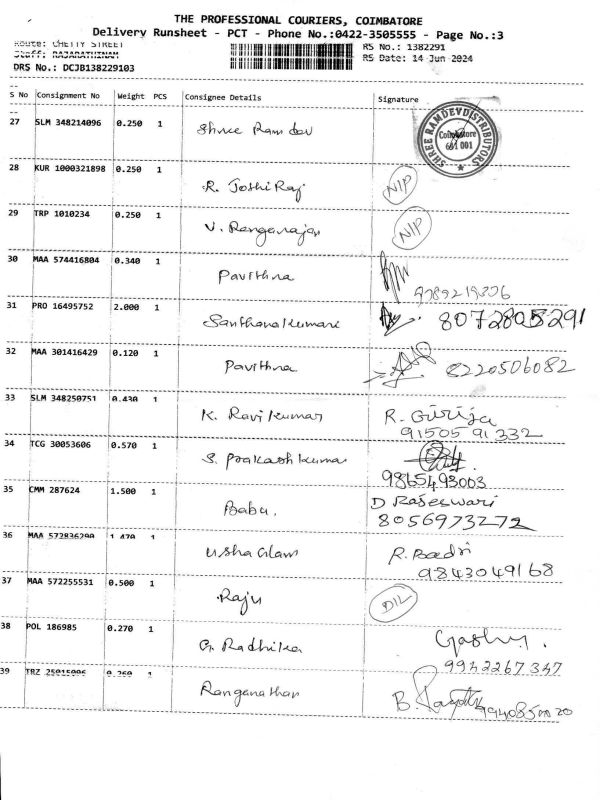 THE PROFESSIONAL COURIERS, COIMBATORE
Delivery Runsheet - PCT - Phone No.:0422-3505555 - Page No.:3
Route: CHETTY STREET RS No.: 1382291
Staff: RAJARATHINAM RS Date: 14 Jun 2024
DRS No.: DCJB138229103
S No Consignment No Weight PCS Consignee Details Signature
27 SLM 348214096 0.250 1 Shree Ram dev SHREE RAMDEV DISTRIBUTORS Coimbatore 641 001
28 KUR 1000321898 0.250 1 R. Joshi Raj NIP
29 TRP 1010234 0.250 1 V. Renganajan NIP
30 MAA 574416804 0.340 1 Pavithna
9789219376
31 PRO 16495752 2.000 1 Santhana Kumari 8072805291
32 MAA 301416429 0.120 1 Pavithna 8220506082
33 SLM 348250751 0.430 1 K. Ravi kumar R. Girija
91505 91 332
34 TCG 30053606 0.570 1 S. Prakash kumar
9865493003
35 CMM 287624 1.500 1 Babu. D Raseswari
8056973272
36 MAA 572836290 1.470 1 Usha Glam R. Badri
9843049168
37 MAA 572255531 0.500 1 Raju DIL
38 POL 186985 0.270 1 G. Radhika
9942267347
39 TRZ 25015006 0.260 1 Ranganathan B.